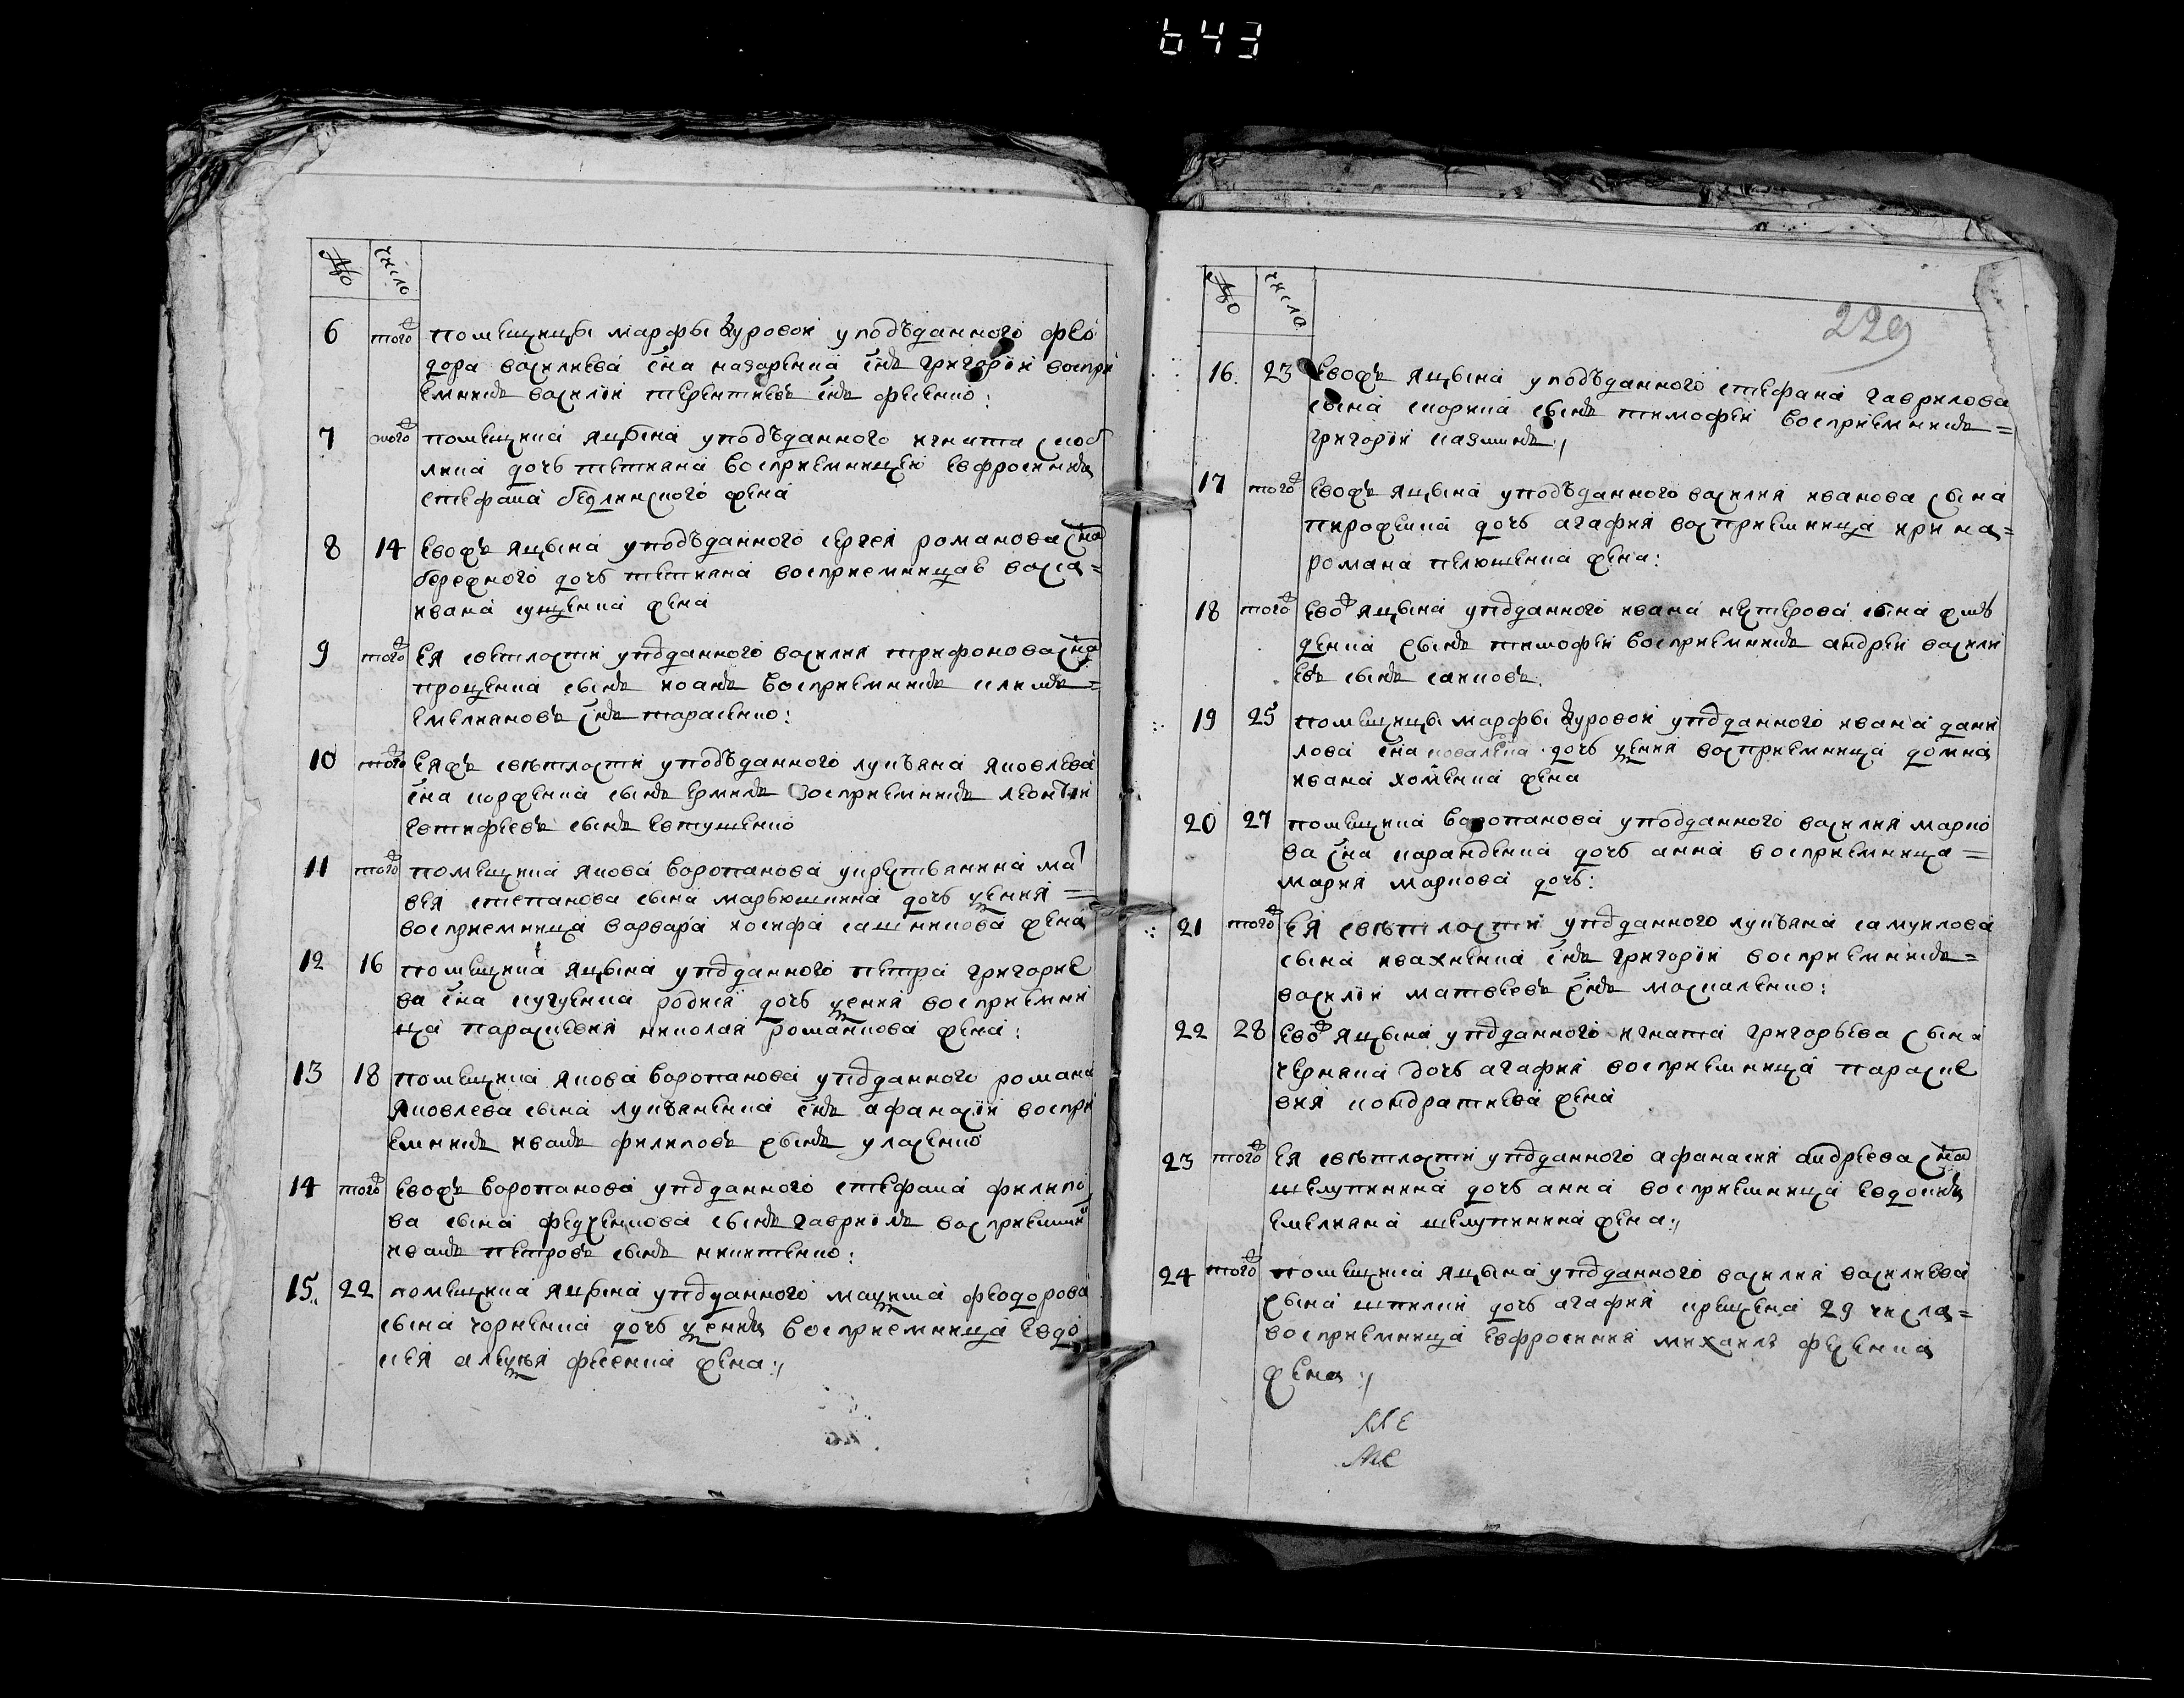 643
№ число
6 тогож помещицы марфы Куровой у подъданного фео
дора василиева сна назаренка снъ григорїй воспри
емникъ василїй терентиевъ снъ фесенко:
7 тогож помещика яцына у подъданного игната скоб
лика дочь тетиана восприемницею евфросиния
стефана бедлинского жена
8 14 Егожъ яцына у подъданного сергея романова сна
бережного дочь тетиана восприемница васса=
ивана сущенка жена
9 тогож Ея светлости у подданного василия трифонова сна
прощенка сынъ иоанъ восприемникъ климъ=
емелиановъ снъ тарасенко:
10 тогож Еяжъ свѣтлости у подъданного лукъяна яковлева
сна корженка сынъ ермилъ восприемникъ леонтїй
евтифѣевъ сынъ евтушенко
11 тогож помещика якова воропанова у крестьянина мат
вея степанова сына марьюшкина дочь ксения =
восприемница варвара иосифа сашникова жена
12 16 помещика яцына у подданного петра григорие
ва сна кугуенка родися дочь ксения восприемни
ца параскевия николая романкова жена:
13 18 помещика якова воропанова у подданного романа
яковлева сына лукъяненка снъ афанасїй воспри
емникъ иванъ филиповъ сынъ уласенко
14 тогож Егожъ воропанова у подданного стефана филипо
ва сына федченкова сынъ гаврїилъ восприемник
иванъ петровъ сынъ никитенко:
15. 22 помещика яцына у подданного максима феодорова
сына чорненка дочь ксения восприемница евдо
кея алексѣя фесенка жена:/
№ число
229
16. 23 Егожъ яцына у подъданного стефана гаврилова
сына скорика сынъ тимофей восприемникъ=
григорїй казминъ:/
17 тогож Егожъ яцына у подъданного василия иванова сына
пироженка дочь агафия восприемница ирина=
романа пелюшенка жена:
18 тогож Егож яцына у подданного ивана нестерова сына
денка сынъ тимофей восприемникъ андрей васили
евъ сынъ саковъ.
19 25 помещицы марфы Куровой у подданного ивана дани
лова сна коваленка дочь ксения восприемница домна
ивана хоменка жена
20 27 помещика воропанова у подданного василия марко
ва сна карандевка дочь анна восприемница=
мария маркова дочь:
21 тогож Ея свѣтлости у подданного лукъяна самуилова
сына ивахненка снъ григорїй восприемникъ=
василїй матвеевъ снъ москаленко:
22 28 Егож яцына у подданного игната григорьева сына
черняка дочь агафия восприемница параске
вия кондратиева жена
23 тогож Ея свѣтлости у подданного афанасия андреева сна
шелупинина дочь анна восприемница евдокия
емелиана шелупинина жена:/
24 тогож помещика яцына у подданного василия василиева
сына шпилки дочь агафия крещена 29 числа=
восприемница евфросиния михаила фесенка
жена:/